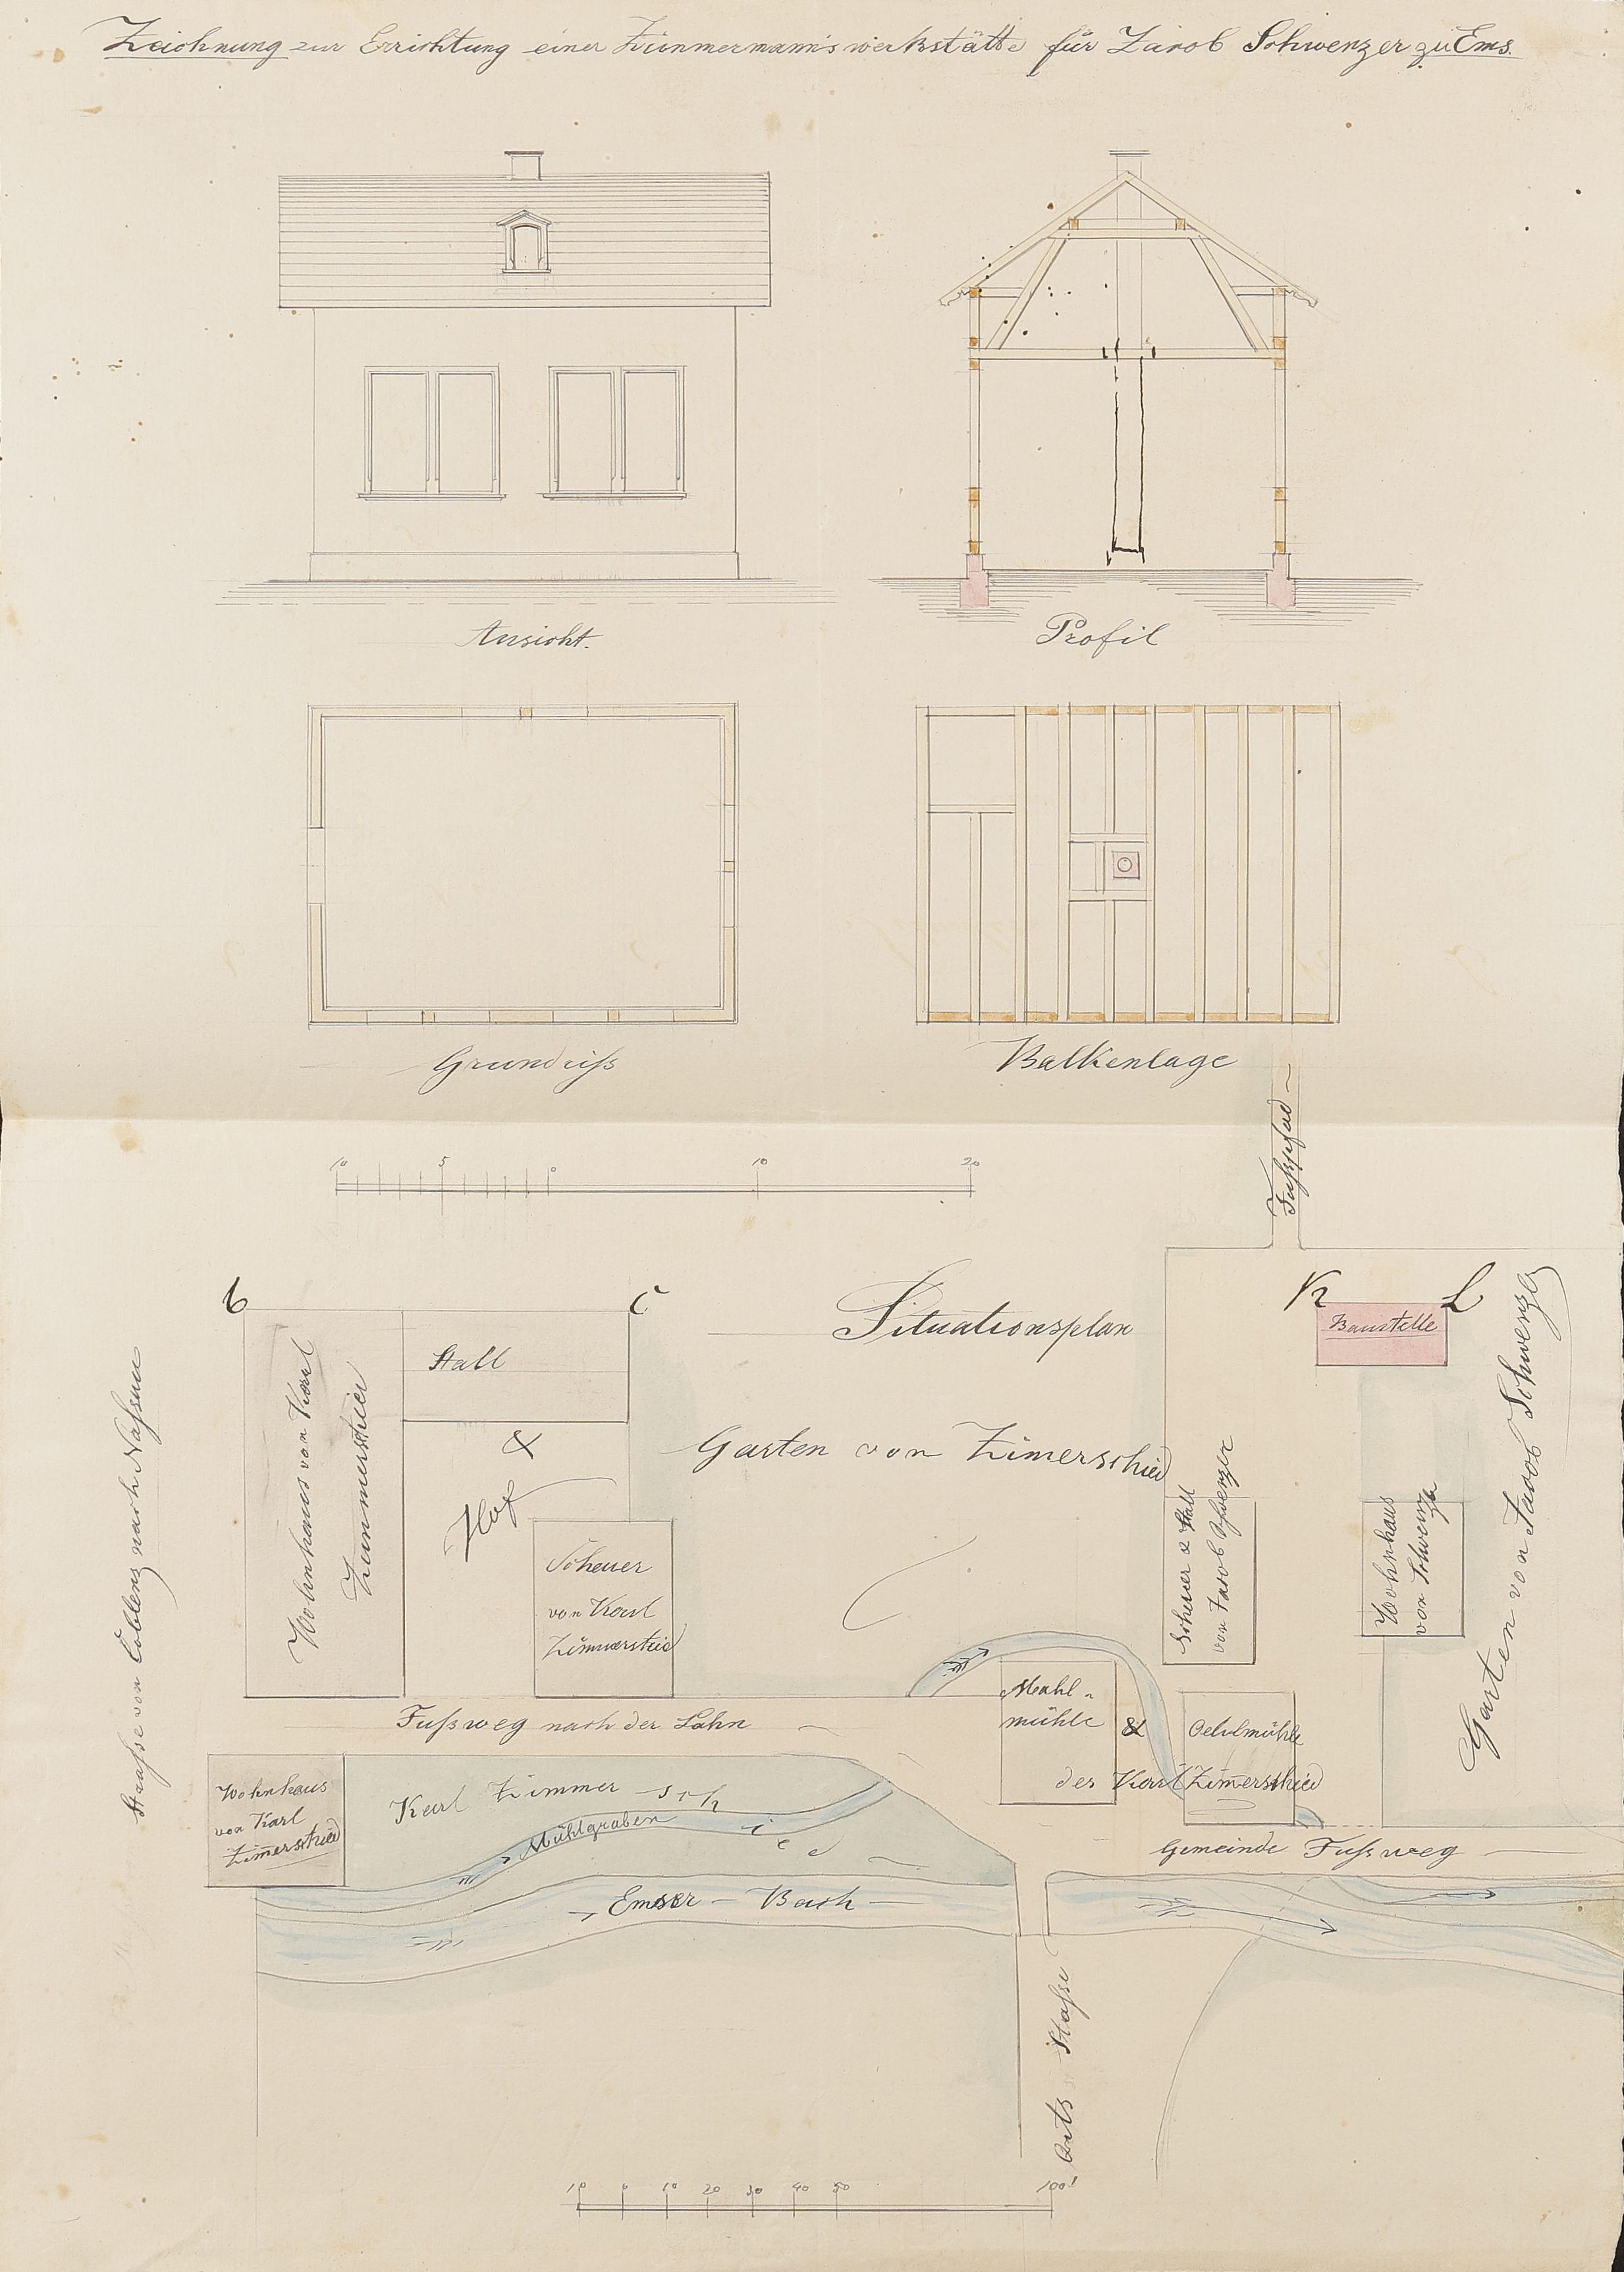 Zeichnung zur Errichtung einer Zimmermann's werkstätte für Jacob Schwenzer zu Ems.
Ansicht.
Profil
Grundriß
Balkenlage
10 5 0 10 20
Fußpfad
b
c
K
L
Situationsplan
Baustelle
Stall
Wohnhaus von Karl
Zimmerschied
&
Hof
Garten von Zimerschied
Scheuer
von Karl
Zimmerschied
Scheuer & Stall
von Jacob Schwenzer
Wohnhaus
von Schwenzer
Garten von Jacob Schwenzer
Straße von Coblenz nach Nassau
Fußweg nach der Lahn
Mahl-
mühle
&
Oehlmühle
des Karl Zimerschied
Wohnhaus
von Karl
Zimerschied
Karl Zimmerschied
Mühlgraben
Emser-Bach
Gemeinde Fußweg
Orts Straße
10 0 10 20 30 40 50 100'